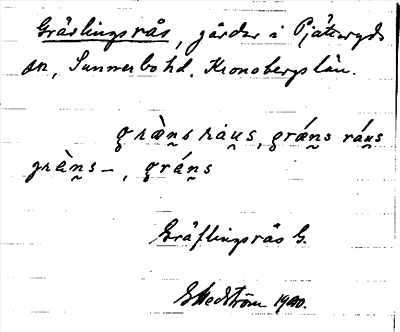 Grävlingsrås, gårdar i Pjätteryds
sn, Sunnerbo hd, Kronobergs län.
græ̀ns ráus, grǽns ráus
græ̀ns –, grǽns
Gräflingsrås G.
G Hedström 1920.